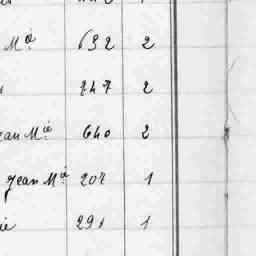 Mie 632 2
747 2
ean Mie 640 2
Jean Mie 207 1
ie 291 1